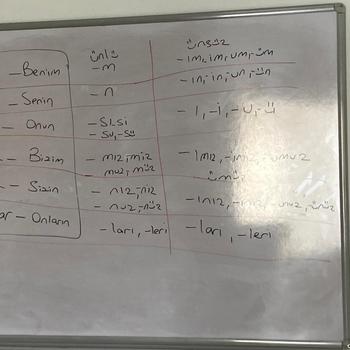 ünlü ünsüz
- Benim - m - ım, im, um, -üm
- Senin - n - ın, -in, -un, -ün
- Onun - sı, -si - ı, -i, -u, -ü
- su, -sü
- Bizim - mız, miz - ımız, -imiz, -umuz
muz, müz ümüz
- Sizin - nız, -niz - ınız, -iniz, -unuz, -ünüz
- nuz, -nüz
- Onların - ları, -leri - ları, -leri